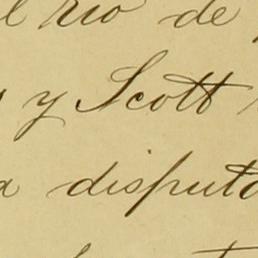 l rio de
y Scott
a disputa